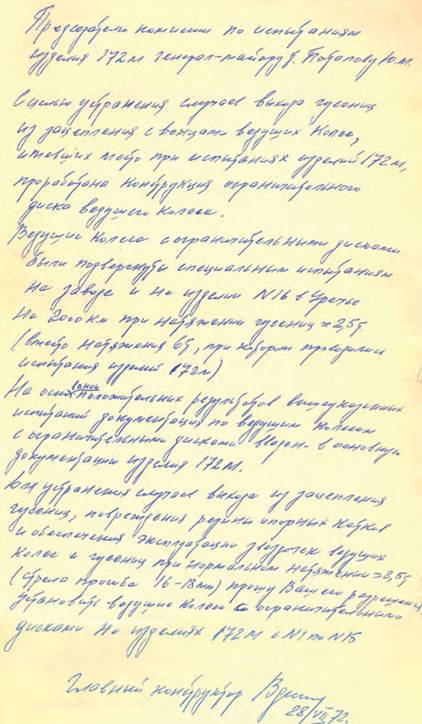 Председателю комиссии по испытаниям
изделия 172м генерал-майору т. Потапову Ю.М.
С целью устранения случаев выхода гусениц
из зацепления с венцами ведущих колес,
имевших место при испытаниях изделий 172м,
проработана конструкция ограничительного
диска ведущего колеса.
Ведущие колеса с ограничительными дисками
были подвергнуты специальным испытаниям
на заводе и на изделии N16 в
на 2000 км при натяжении гусениц ≈ 2,5т
(вместо натяжения 6т, при котором проводились
испытания изделий 172м)
На основании положительных результатов вышеуказанных
испытаний документация по ведущим колесам
с ограничительными дисками введен- в основную
документацию изделия 172м.
Для устранения случаев выхода из зацепления
гусениц, повреждения резины опорных катков
и обеспечения эксплуатации ведущих
колес и гусениц при нормальном натяжении ≈ 2,5т
(стрела прогиба 16-18мм) прошу Вашего разрешения
установить ведущие колеса с ограничительными
дисками на изделиях 172м с N1 по N15
Главный конструктор
28/VII 72.